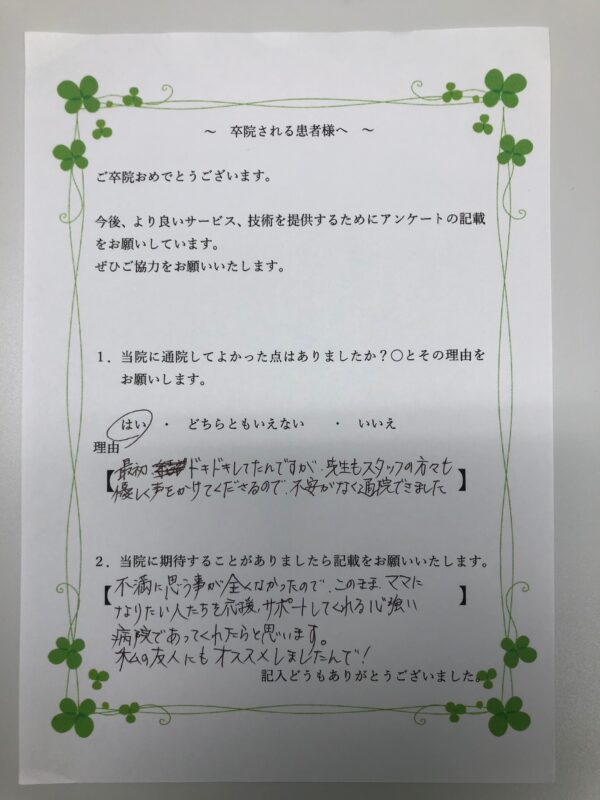 ～　卒院される患者様へ　～
ご卒院おめでとうございます。
今後、より良いサービス、技術を提供するためにアンケートの記載
をお願いしています。
ぜひご協力をお願いいたします。
１．当院に通院してよかった点はありましたか？〇とその理由を
お願いします。
はい　・　どちらともいえない　・　いいえ
理由
【最初 ドキドキしてたんですが、先生もスタッフの方々も
優しく声をかけてくださるので、不安がなく通院できました】
２．当院に期待することがありましたら記載をお願いいたします。
【不満に思う事が全くなかったので、このまま、ママに
なりたい人たちを応援、サポートしてくれる心強い】
病院であってくれたらと思います。
私の友人にもオススメしましたんで！
記入どうもありがとうございました。